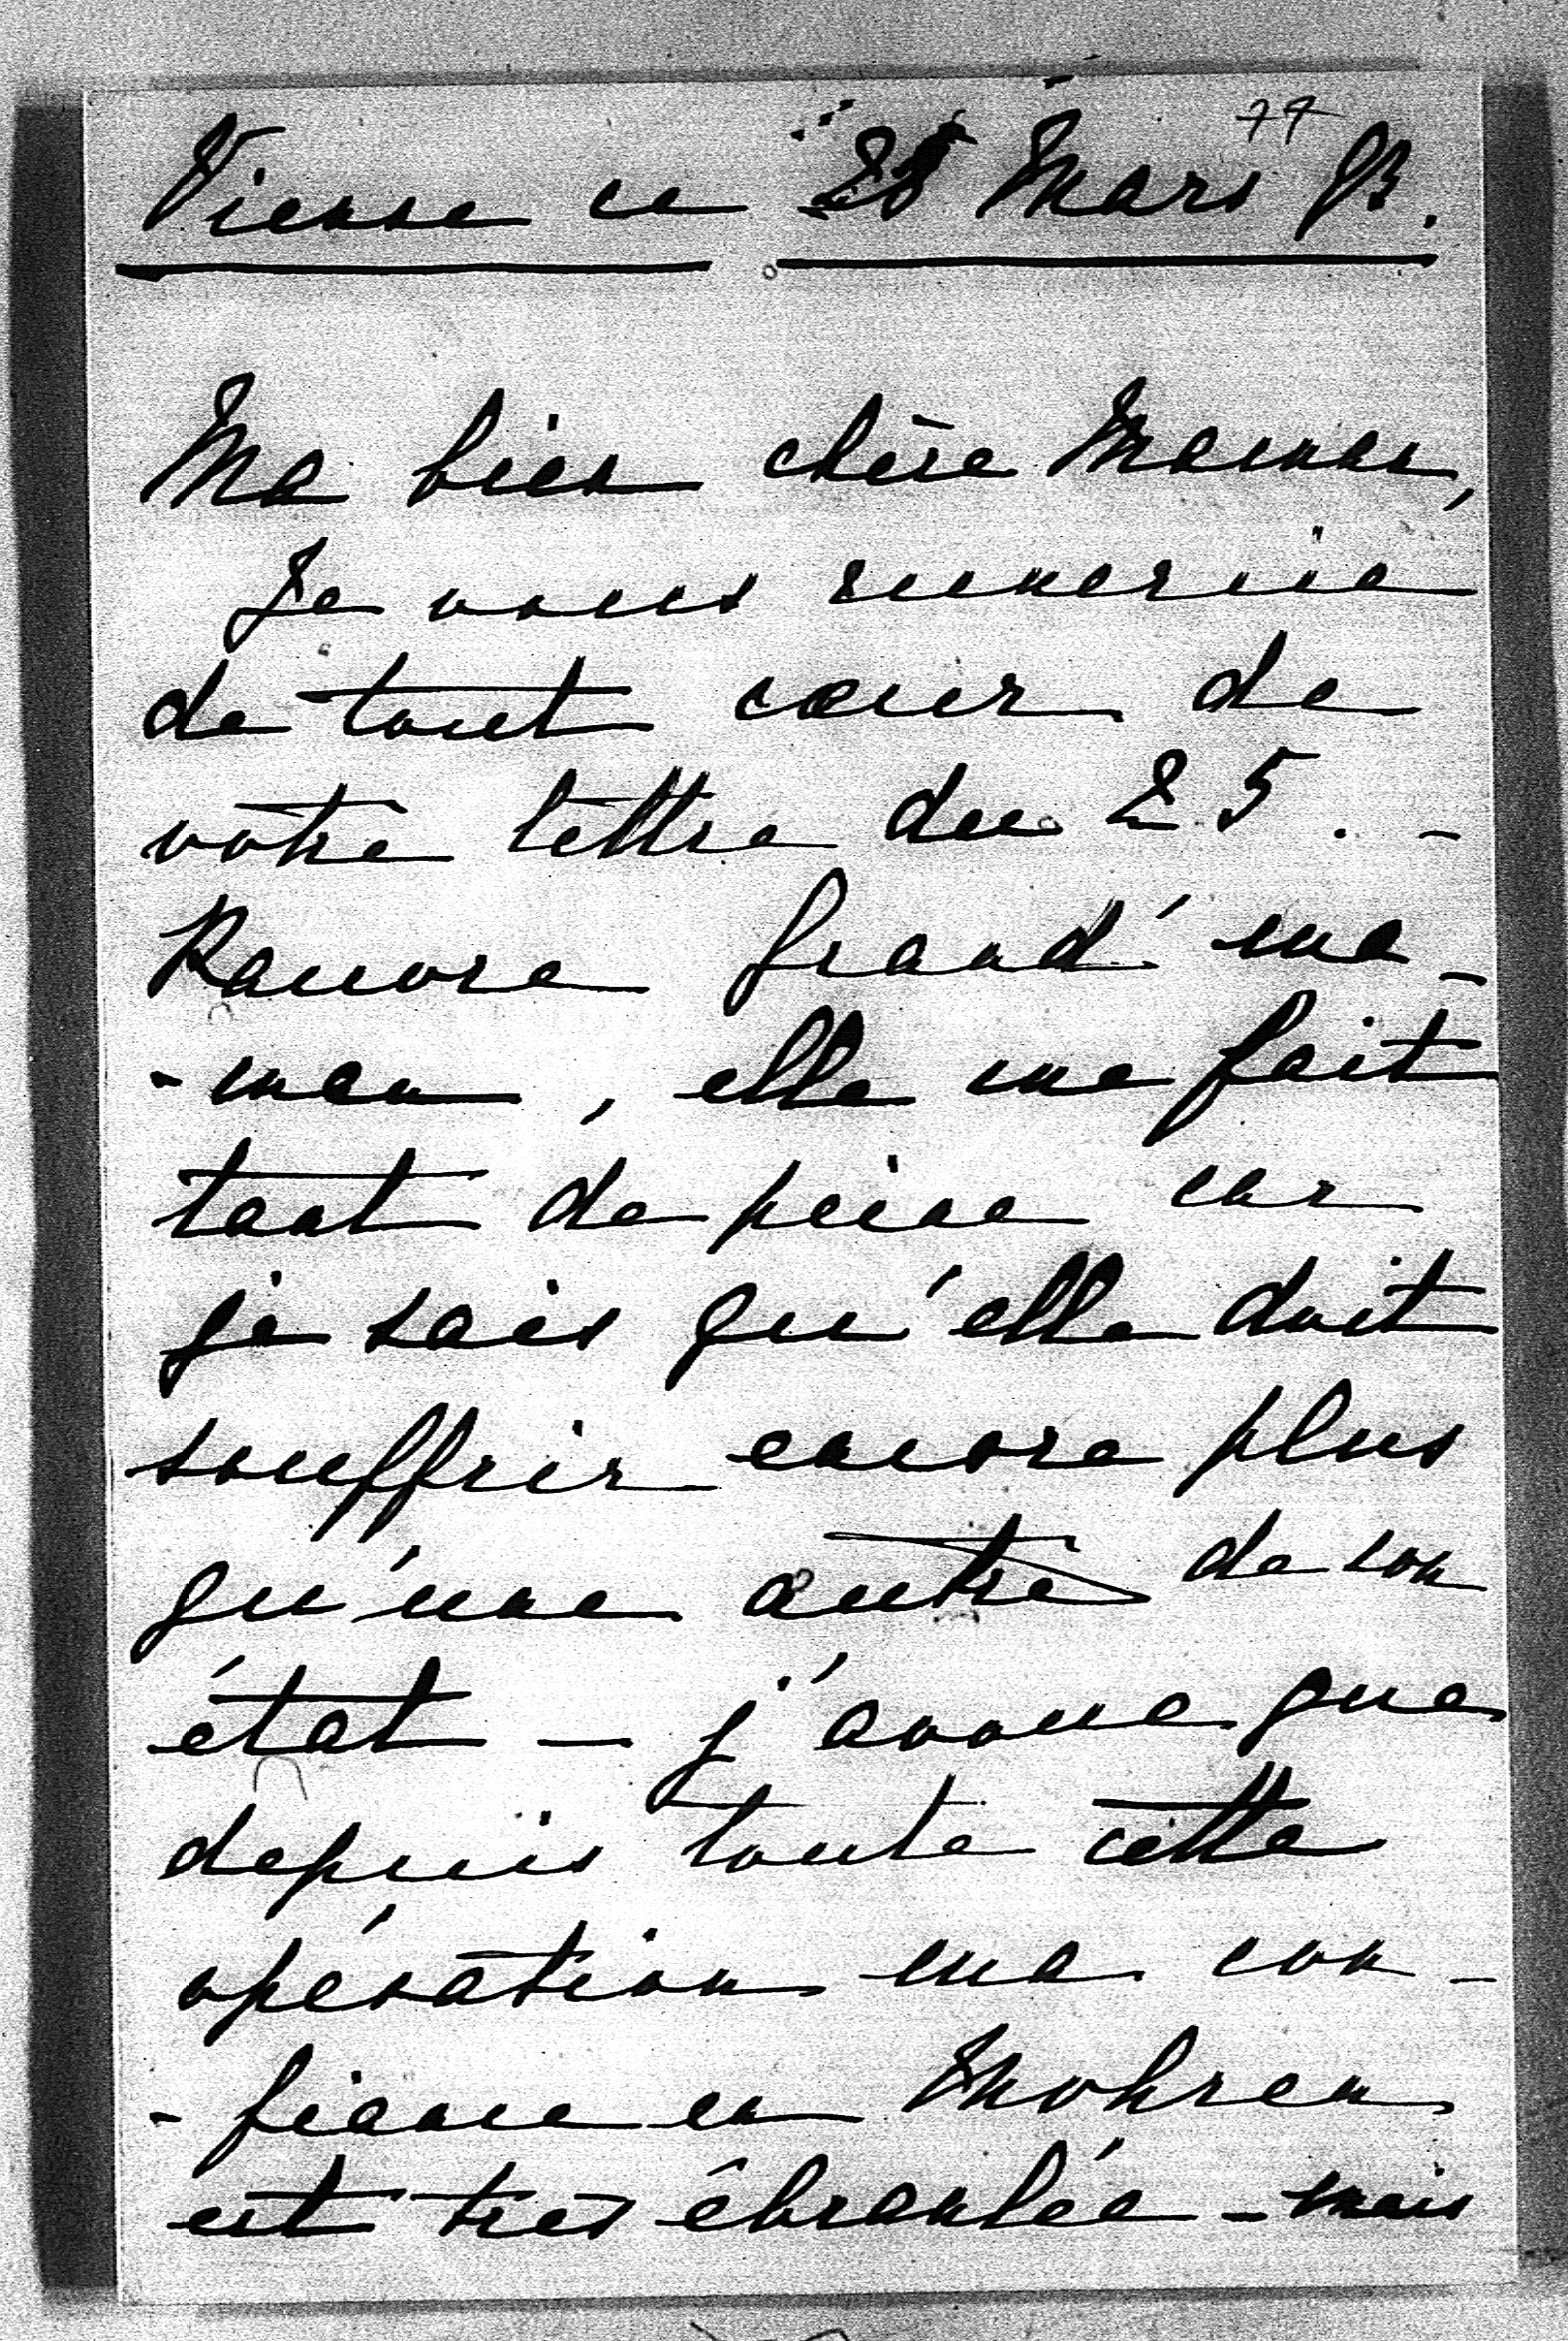 77
Vienne ce 28 Mars 93.
Ma bien chère Maman,
Je vous remercie
de tout cœur de
votre lettre du 25. -
Pauvre Grand' ma-
-man, elle me fait
tant de peine car
je sais qu'elle doit
souffrir encore plus
qu'une autre de son
état — j'avoue que
depuis toute cette
opération ma con-
-fiance en Mohren
est très ébranlée - mais